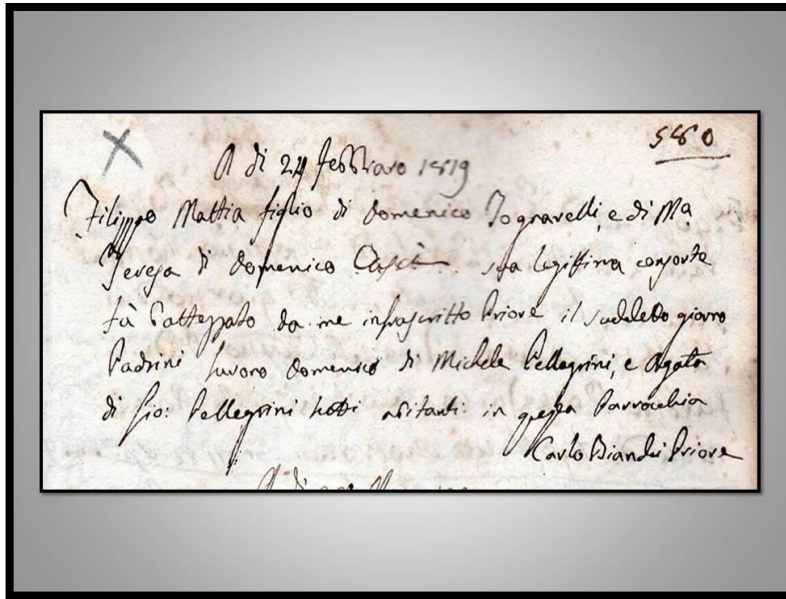 580
A di 24 febbraro 1819
Filippo Mattia figlio di Domenico Tognarelli, e di Ma
Teresa di Domenico sua legittima consorte
fù battezzato da me infrascritto Priore il suddetto giorno
Padrini furono Domenico di Michele Pellegrini, e Agata
di Gio: Pellegrini tutti abitanti in questa Parrocchia
Carlo Bianchi Priore